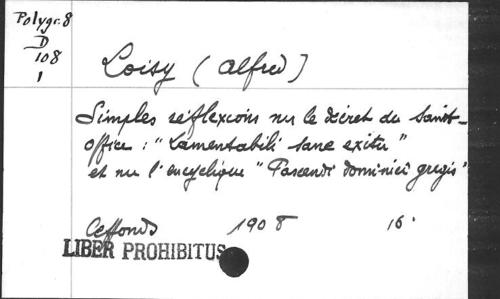 Polygr. 8
D
108
1
Loisy (Alfred)
Simples réflexions sur le décret du Saint-
office : "Lamentabili sane exitu"
et sur l'encyclique "Pascendi dominici gregis"
Ceffonds 1908 16°
LIBER PROHIBITUS